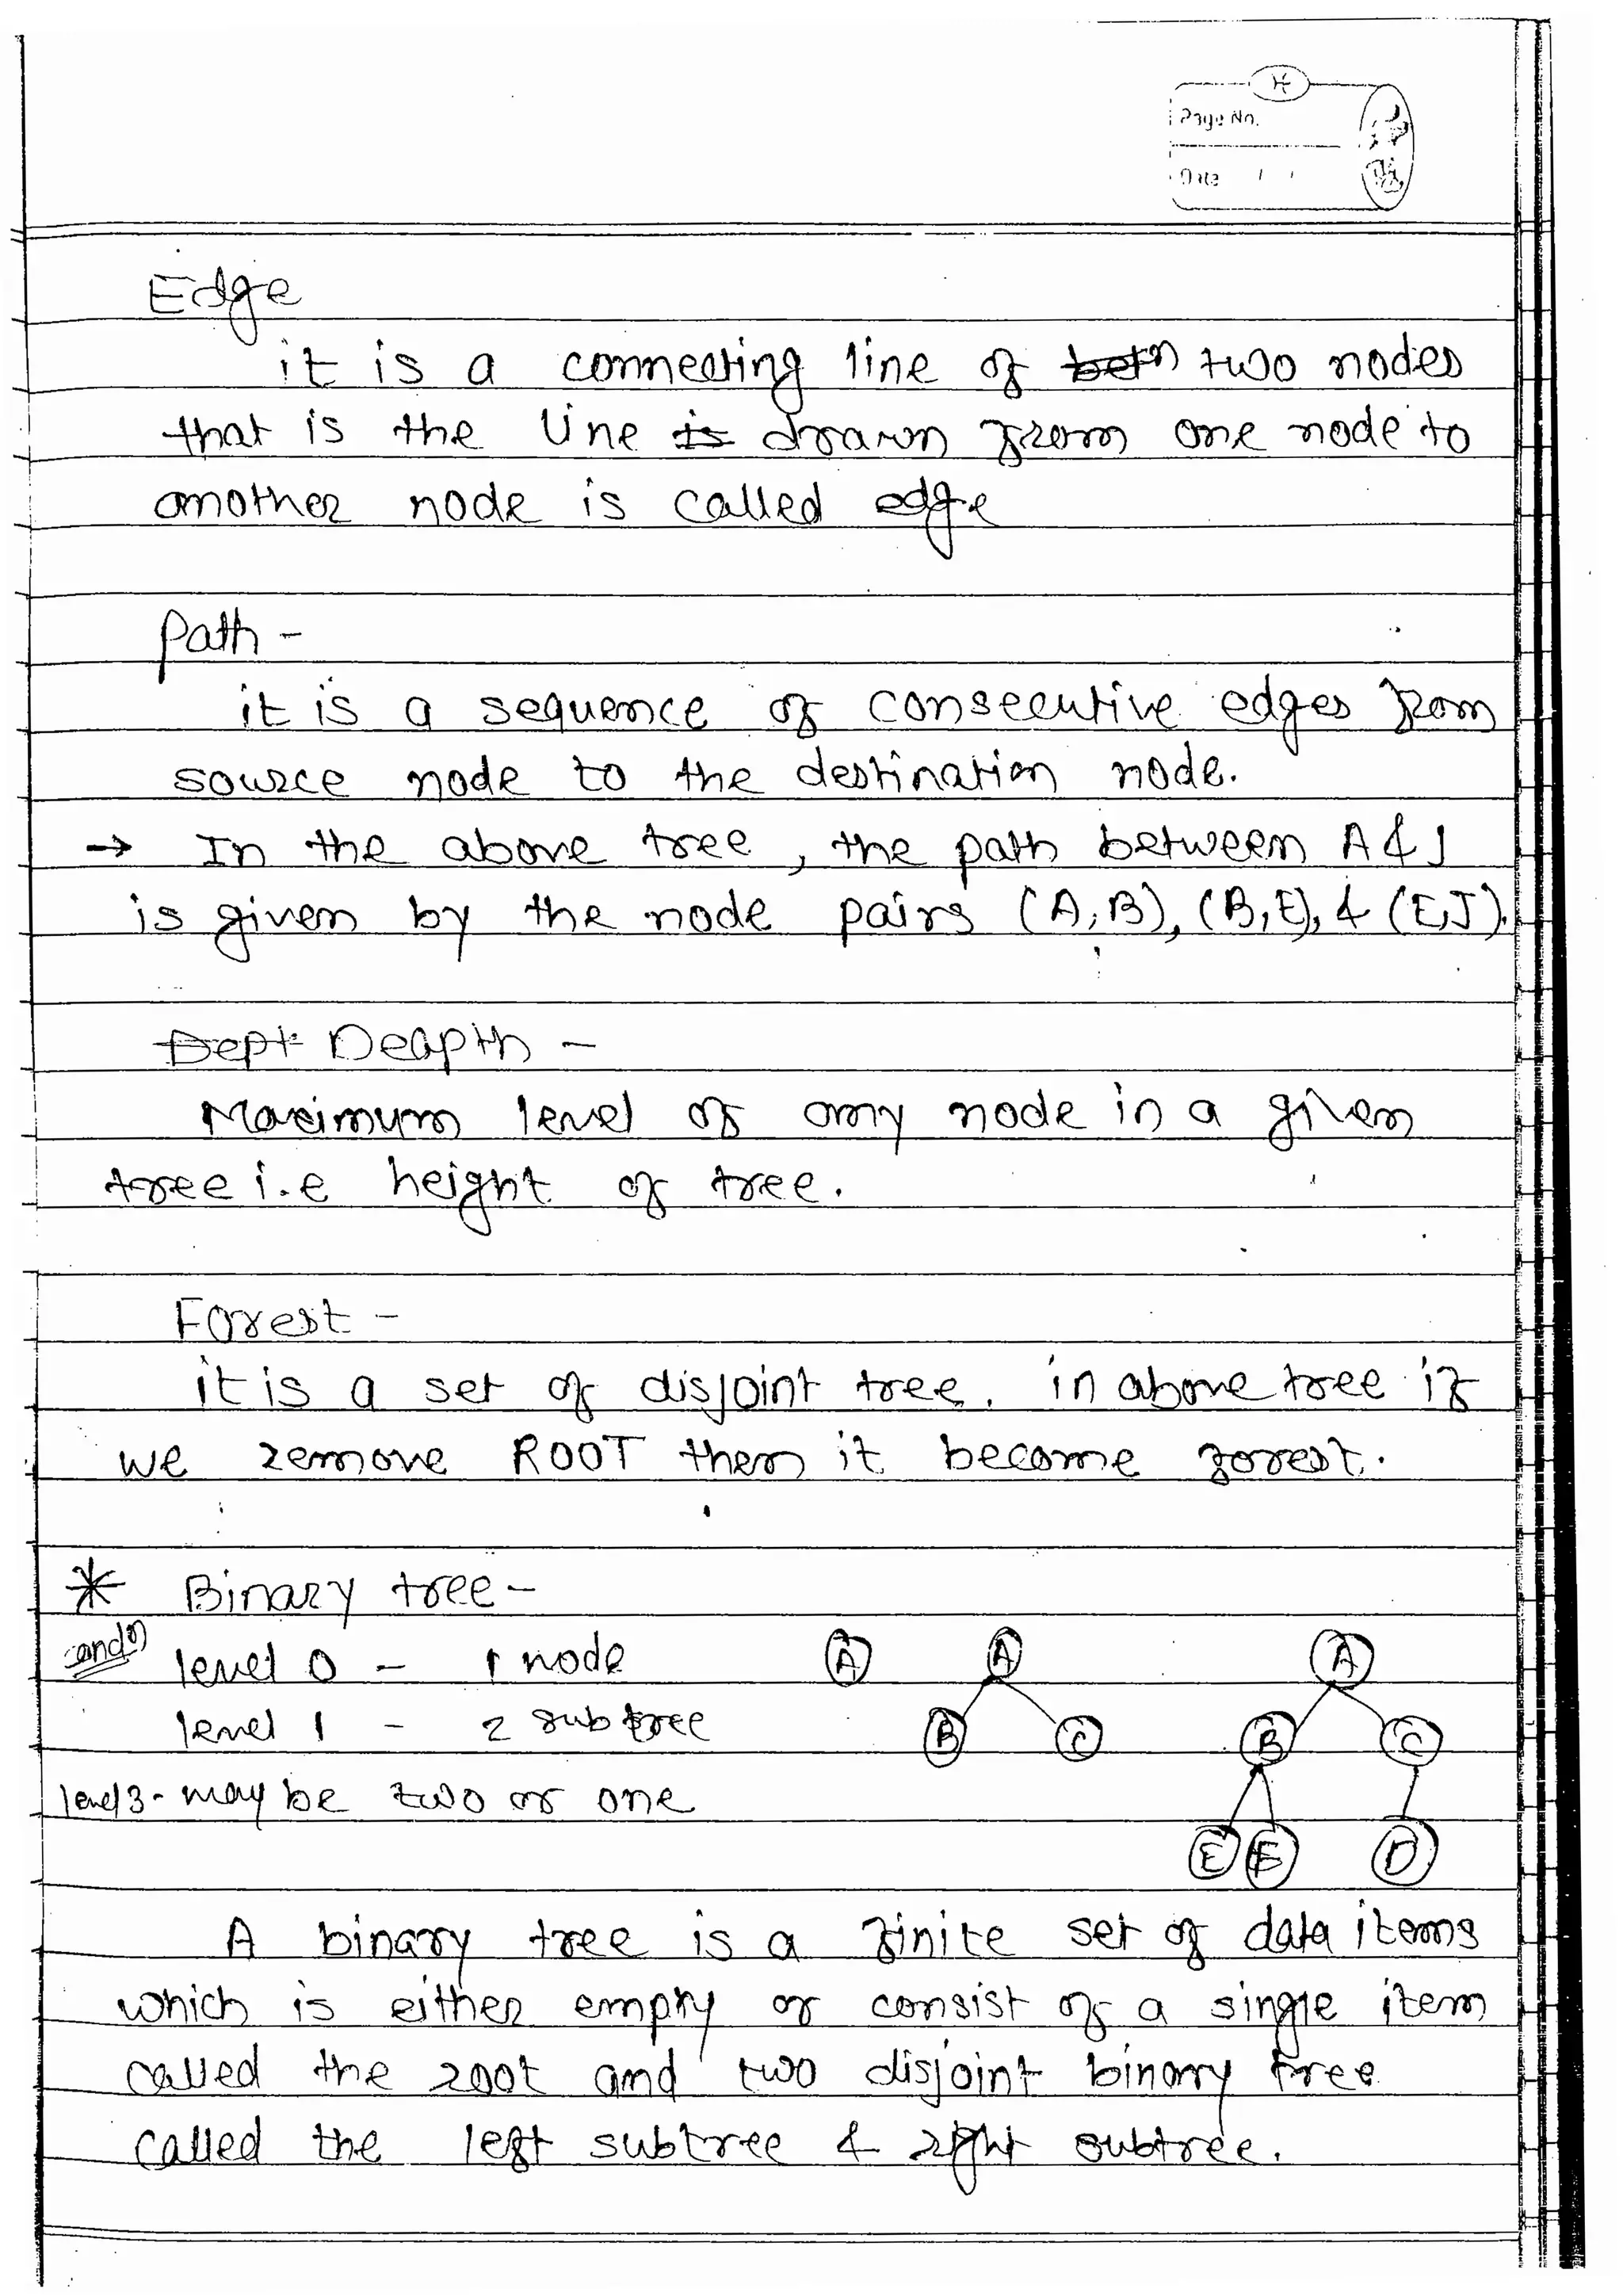 Page No.
Date / /
Edge
it is a connecting line of betn two nodes
that is the line is drawn from one node to
another node is called edge
Path -
it is a sequence of consecutive edges from
source node to the destination node.
→ In the above tree, the path between A & J
is given by the node pairs (A,B), (B,E), & (E,J).
Dept Deapth -
Maximum level of any node in a given
tree i.e height of tree.
Forest -
it is a set of disjoint tree. in above tree if
we remove ROOT then it become forest.
* Binary tree -
condn level 0 - 1 node A A A
level 1 - 2 subtree B C B C
level 3 - may be two or one
E E D
A binary tree is a finite set of data items
which is either empty or consist of a single item
called the root and two disjoint binary tree
called the left subtree & right subtree.